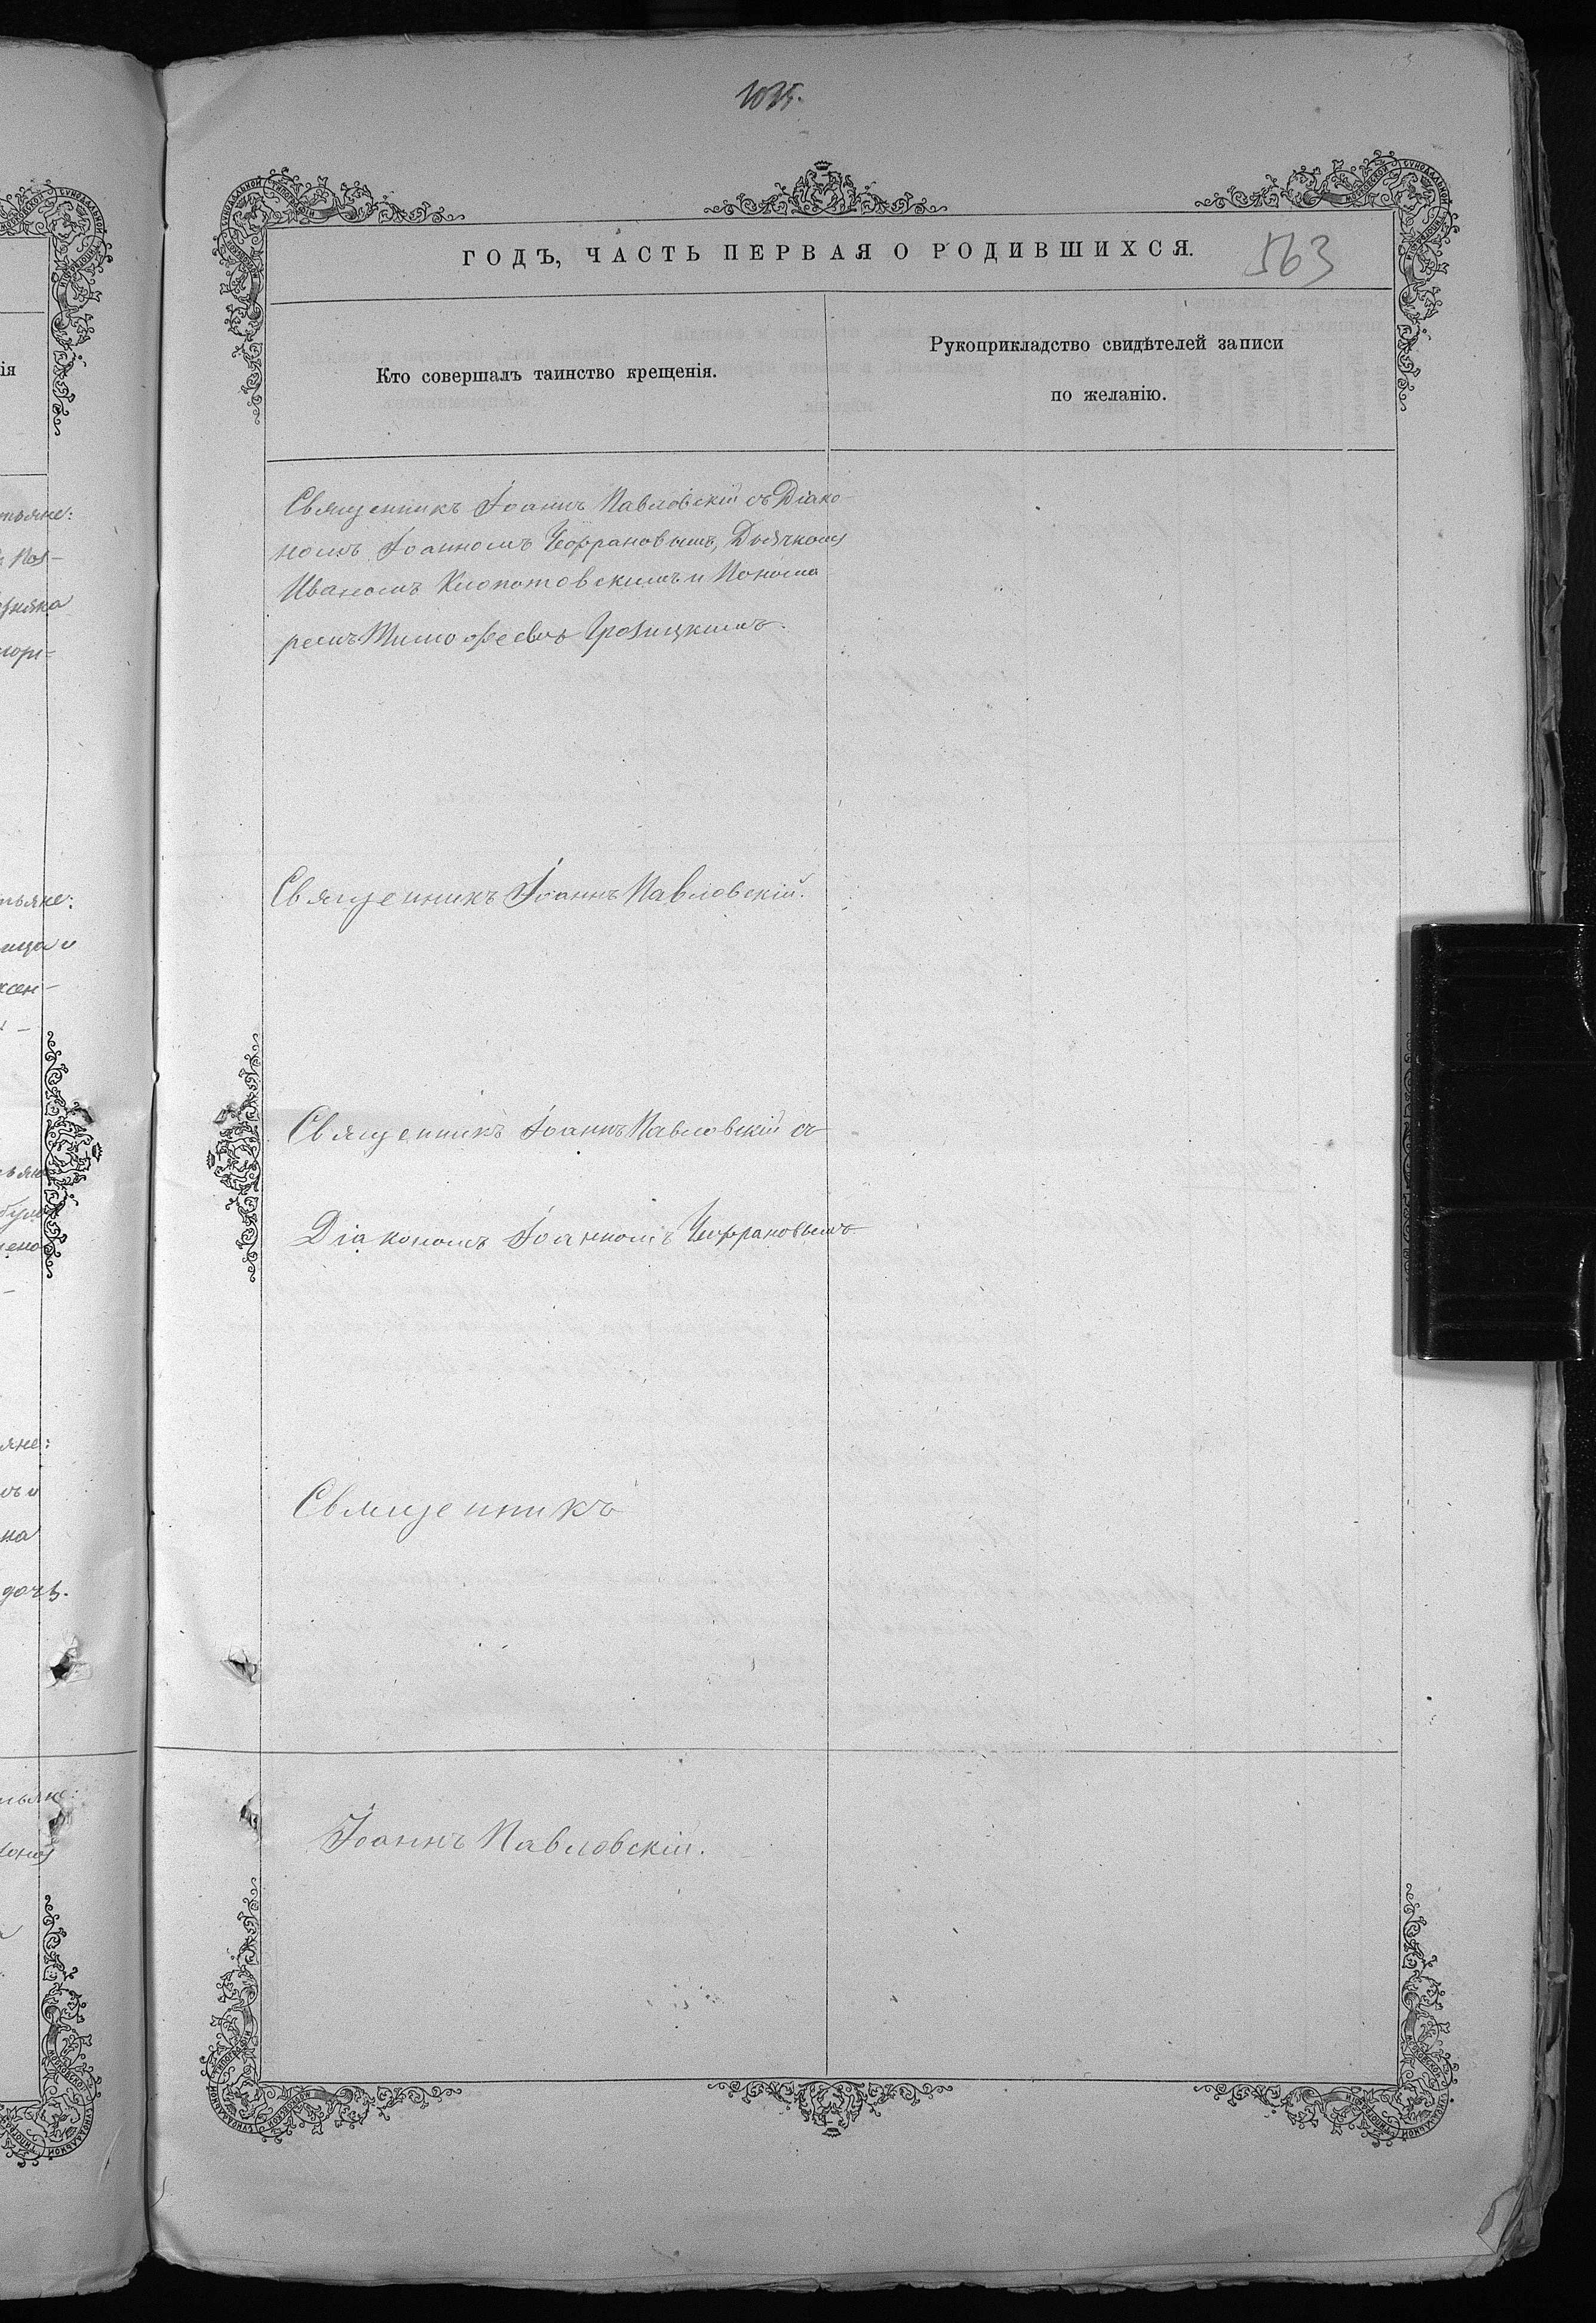 563
ГОДЪ, ЧАСТЬ ПЕРВАЯ О РОДИВШИХСЯ.
Кто совершалъ таинство крещенія.
Рукоприкладство свидѣтелей записи
по желанію.
Священникъ Іоаннъ Павловскій съ Діако-
номъ Іоанномъ Цефрановымъ, Дьячкомъ
Иваномъ Клопотовскимъ и Понома
ремъ Тимофеемъ Грозицкимъ.
Священникъ Іоаннъ Павловскій.
Священникъ Іоаннъ Павловскій съ
Діакономъ Іоанномъ Цефрановымъ
Священникъ
Іоаннъ Павловскій.